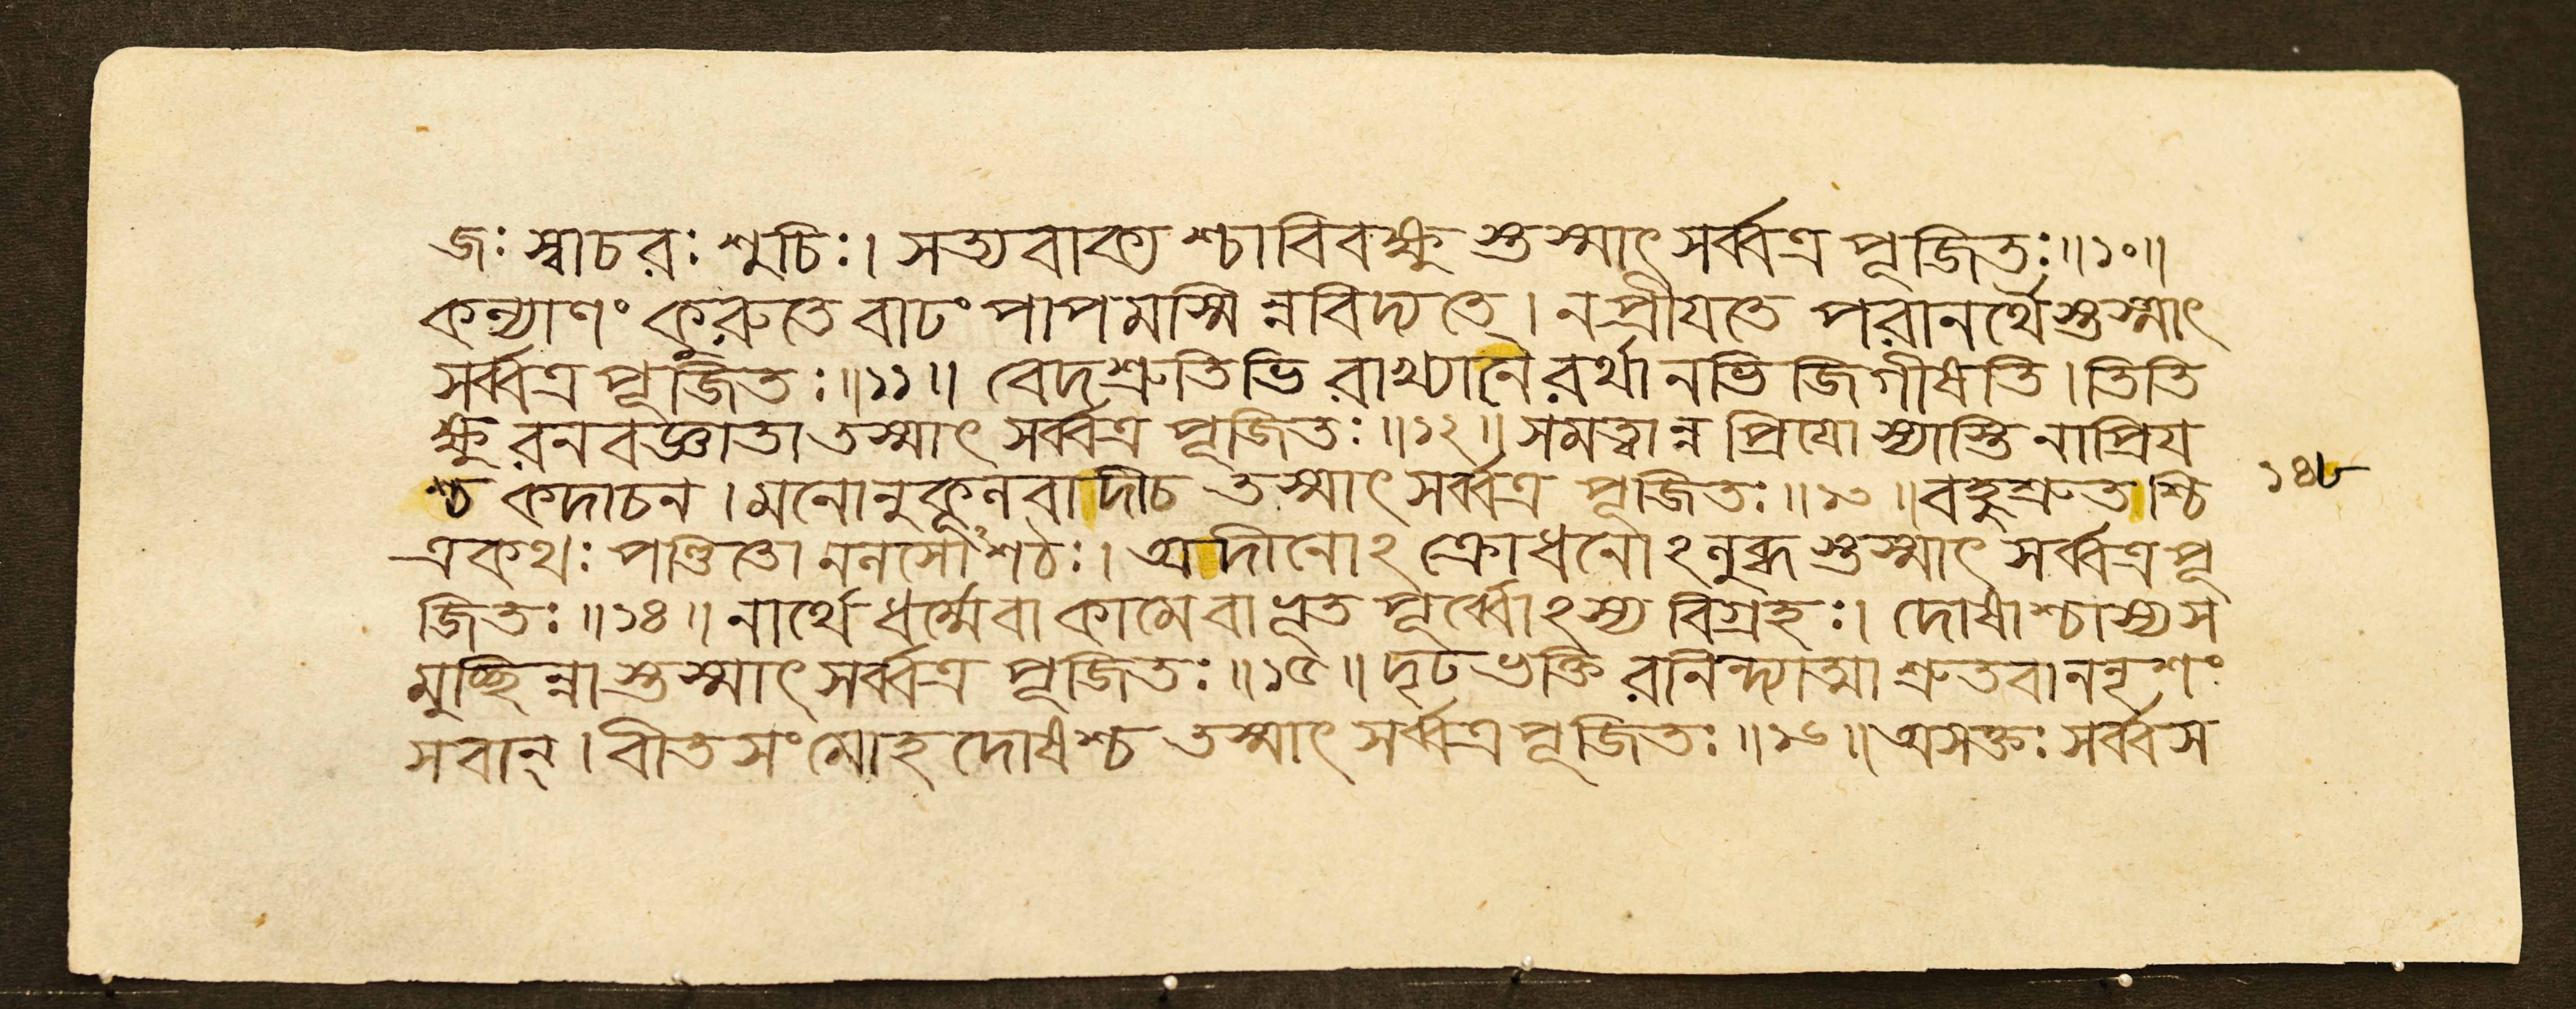 জঃ স্বাচরঃ শুচিঃ। সত্যবাক্য শ্চাবিবক্ষু স্তস্মাৎ সর্ব্বত্র পূজিতঃ॥১০॥
কল্যাণং কুরুতে বাঢং পাপমস্মি ন্নবিদ্যতে। নপ্রীযতে পরানর্থৈস্তস্মাৎ
সর্ব্বত্র পূজিতঃ॥১১॥ বেদশ্রুতিভি রাখ্যানৈরর্থানভি জিগীষতি। তিতি
ক্ষু রনবজ্ঞাতা তস্মাৎ সর্ব্বত্র পূজিতঃ॥১২॥ সমত্বান্ন প্রিযো স্যাস্তি নাপ্রিয
শ্চ কদাচন। মনোনুকূলবাদীচ তস্মাৎ সর্ব্বত্র পূজিতঃ॥১৩॥ বহুশ্রুতশ্চি
ত্রকথঃ পণ্ডিতো নলসোঽশঠঃ। অদীনোঽ ক্রোধনোঽলুব্ধ স্তস্মাৎ সর্ব্বত্র পূ
জিতঃ॥১৪॥ নার্থে ধর্ম্মেবা কামেবা ভূত পূর্ব্বোঽস্য বিগ্রহঃ। দোষাশ্চাস্যস
মুচ্ছিন্না স্তস্মাৎ সর্ব্বত্র পূজিতঃ॥১৫॥ দৃঢভক্তি রনিন্দ্যাত্মা শ্রুতবাননৃশং
সবান্। বীতসংমোহ দোষশ্চ তস্মাৎ সর্ব্বত্র পূজিতঃ॥১৬॥ অসক্তঃ সর্ব্বস
১৪৮